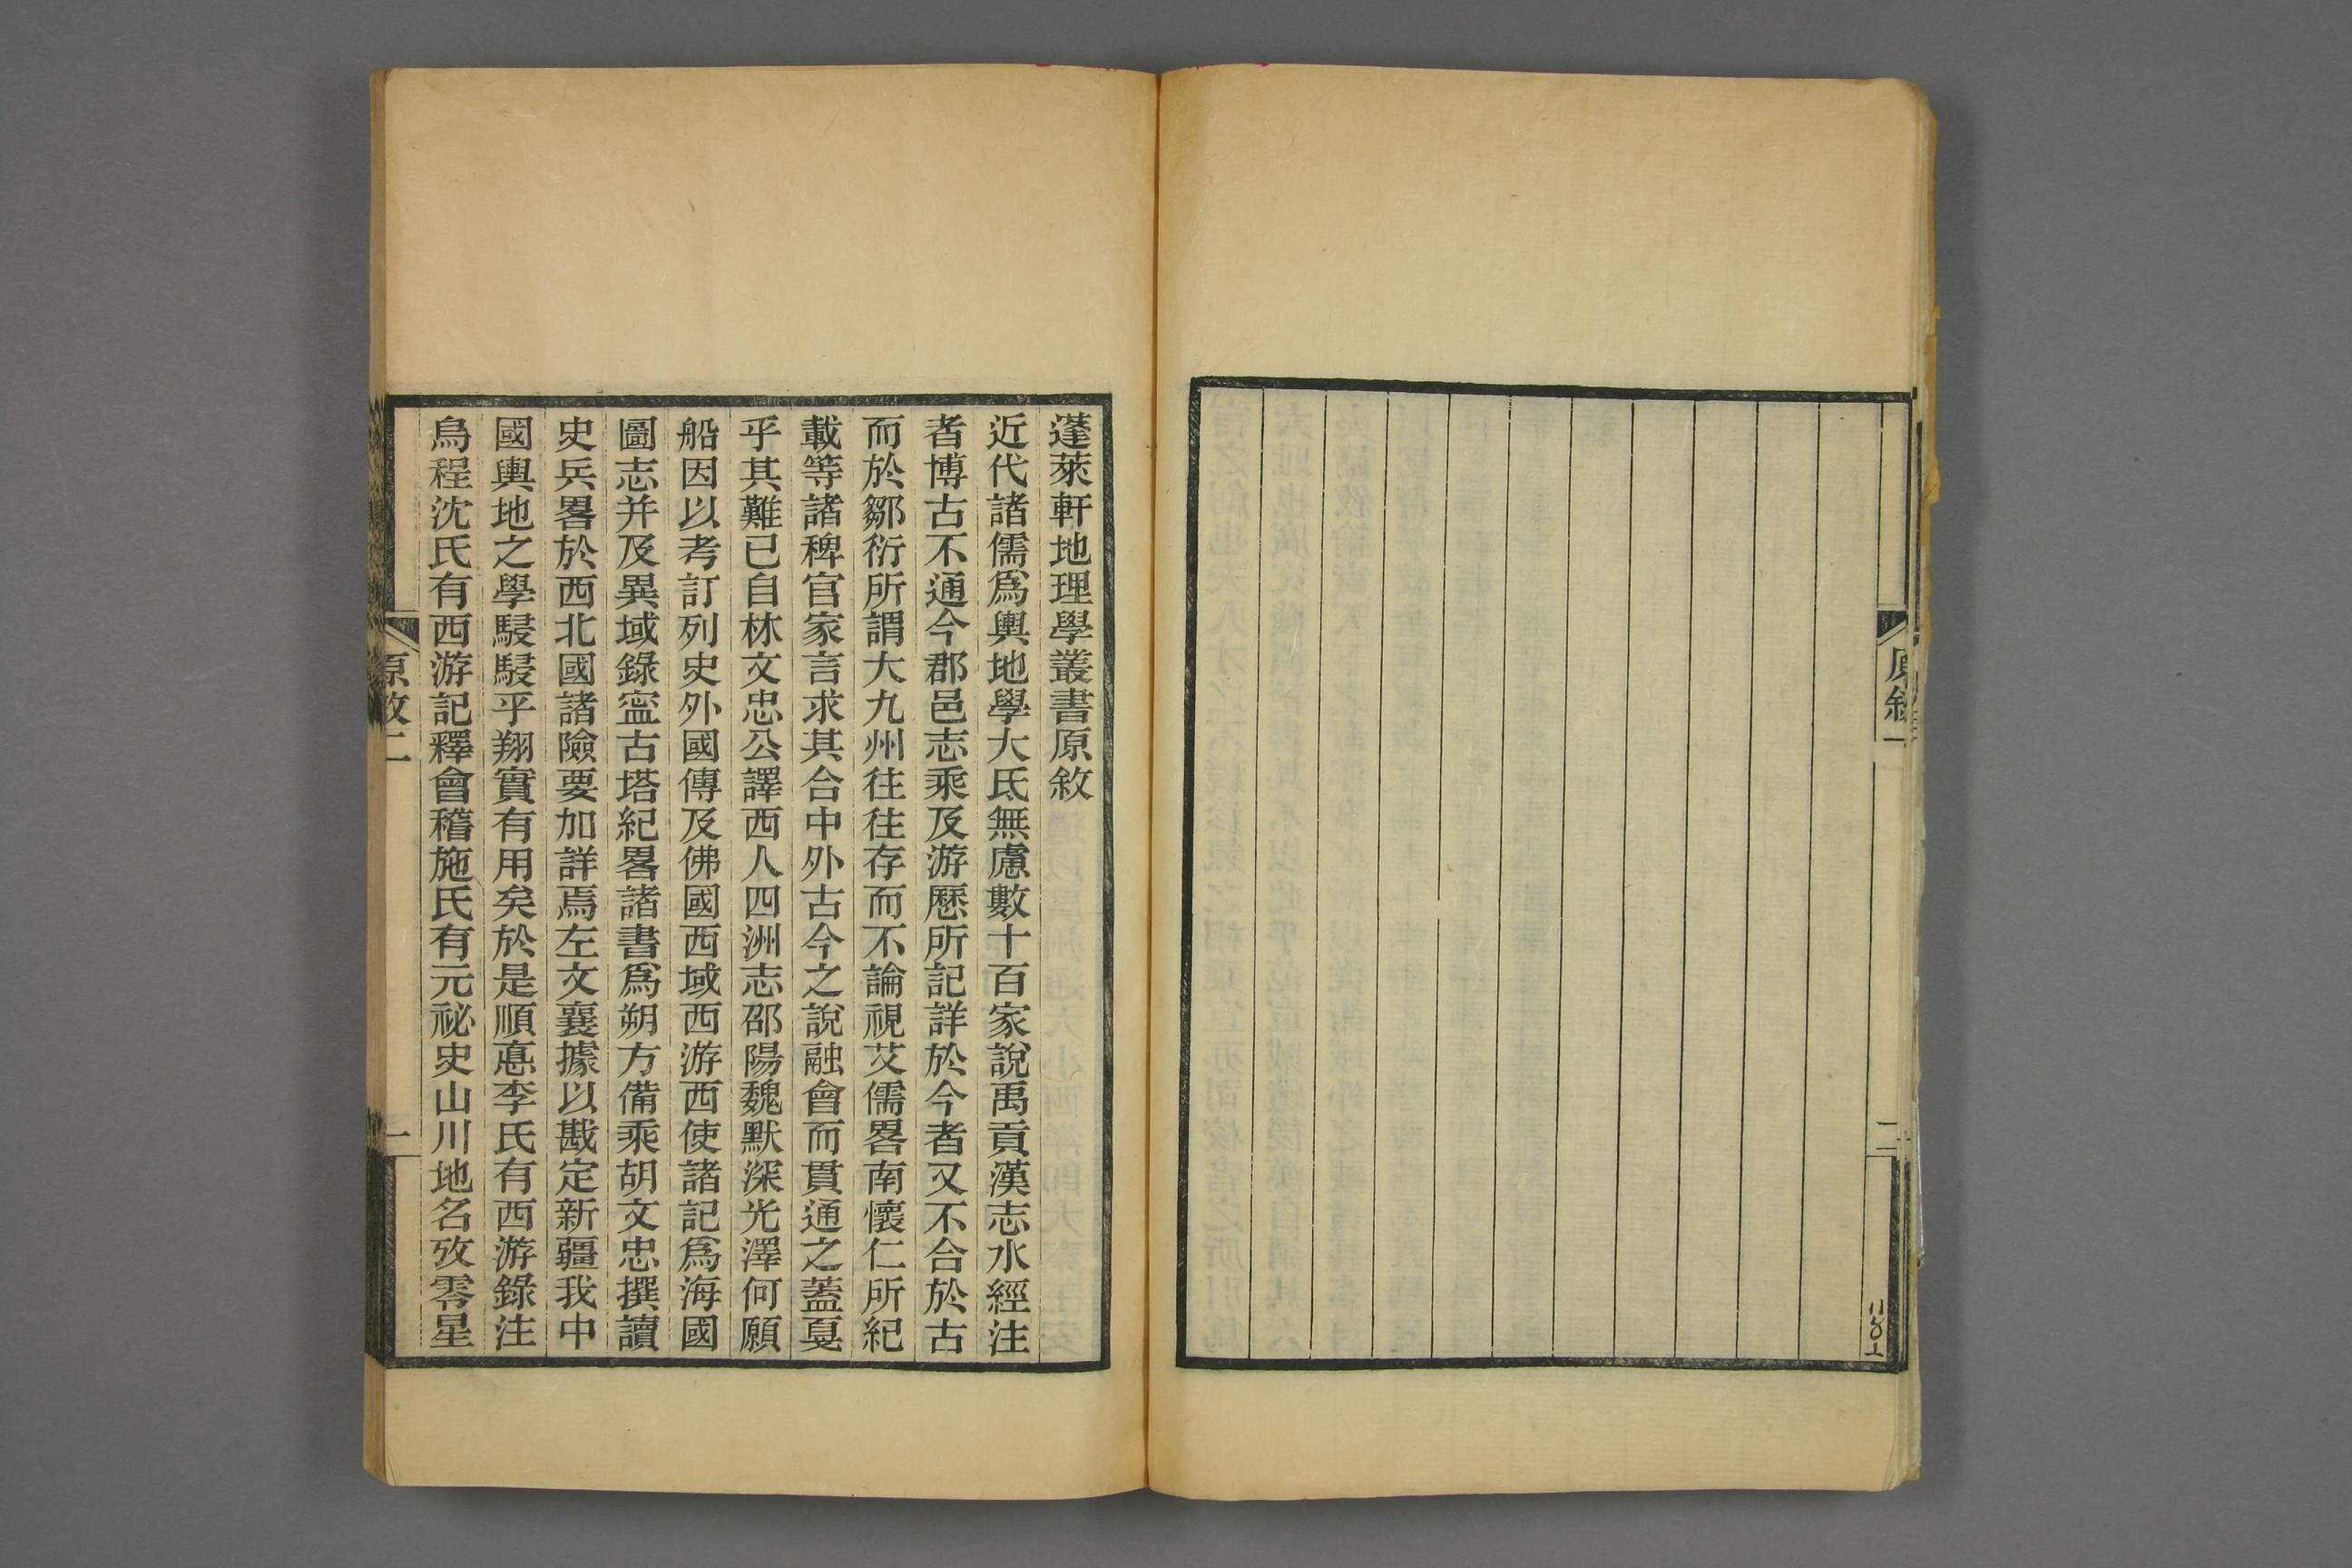 原敘一
二
蓬萊軒地理學叢書原敘
近代諸儒爲輿地學大氐無慮數十百家說禹貢漢志水經注
者博古不通今郡邑志乘及游歷所記詳於今者又不合於古
而於鄒衍所謂大九州往往存而不論視艾儒畧南懷仁所紀
載等諸稗官家言求其合中外古今之說融會而貫通之蓋戛
乎其難已自林文忠公譯西人四洲志邵陽魏默深光澤何願
船因以考訂列史外國傳及佛國西域西游西使諸記爲海國
圖志并及異域錄寍古塔紀畧諸書爲朔方備乘胡文忠撰讀
史兵畧於西北國諸險要加詳焉左文襄據以戡定新疆我中
國輿地之學駸駸乎翔實有用矣於是順悳李氏有西游錄注
烏程沈氏有西游記釋會稽施氏有元祕史山川地名攷零星
原敘二
一